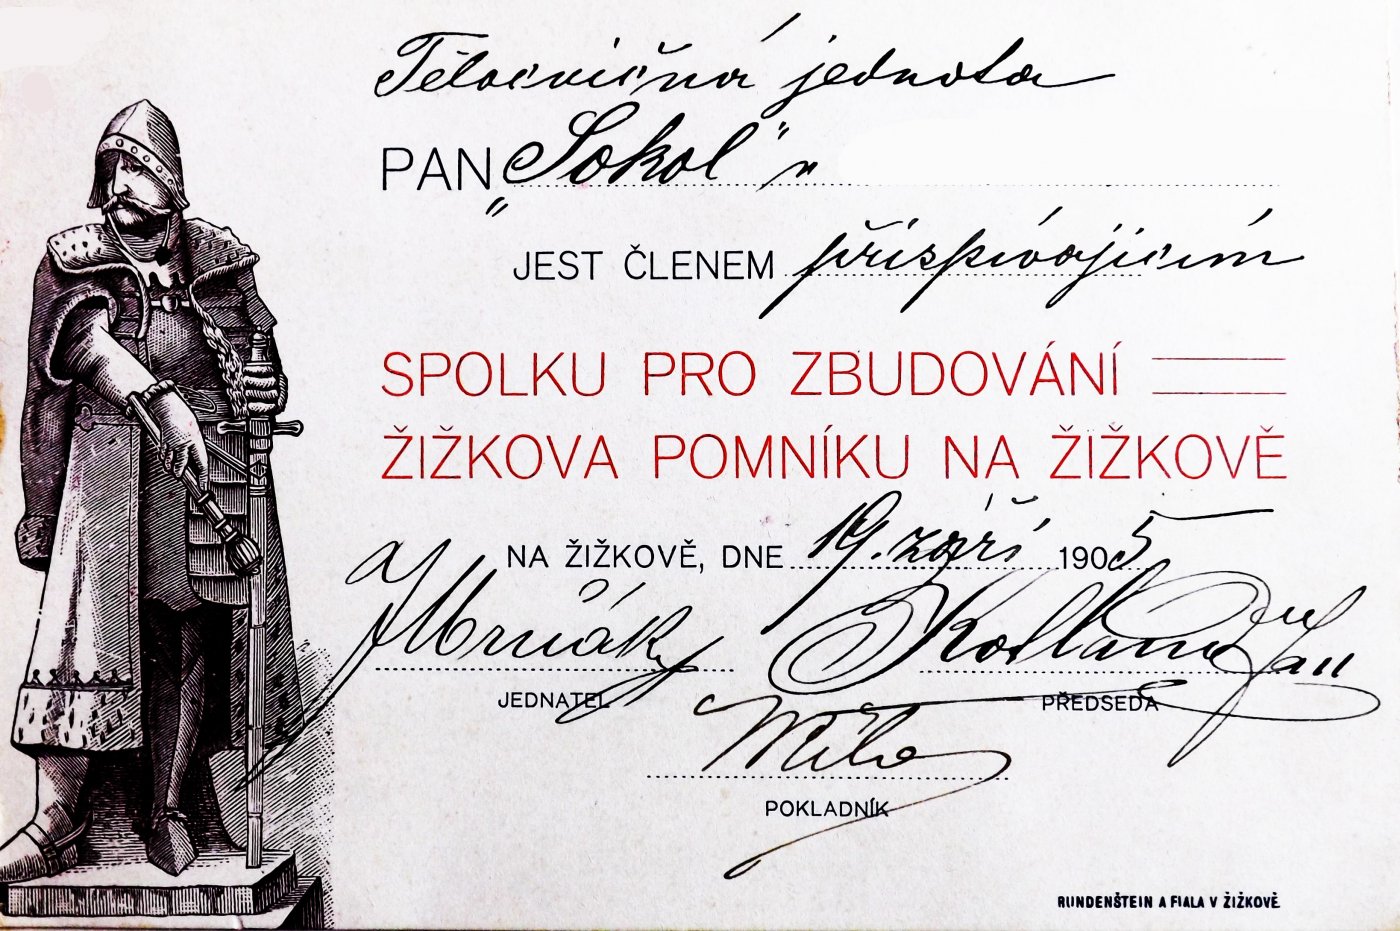 Tělocvičná jednota
PAN „Sokol“ v
JEST ČLENEM přispívajícím
SPOLKU PRO ZBUDOVÁNÍ
ŽIŽKOVA POMNÍKU NA ŽIŽKOVĚ
NA ŽIŽKOVĚ, DNE 19. září 1905
JEDNATEL PŘEDSEDA
POKLADNÍK
RUNDENŠTEIN A FIALA V ŽIŽKOVĚ